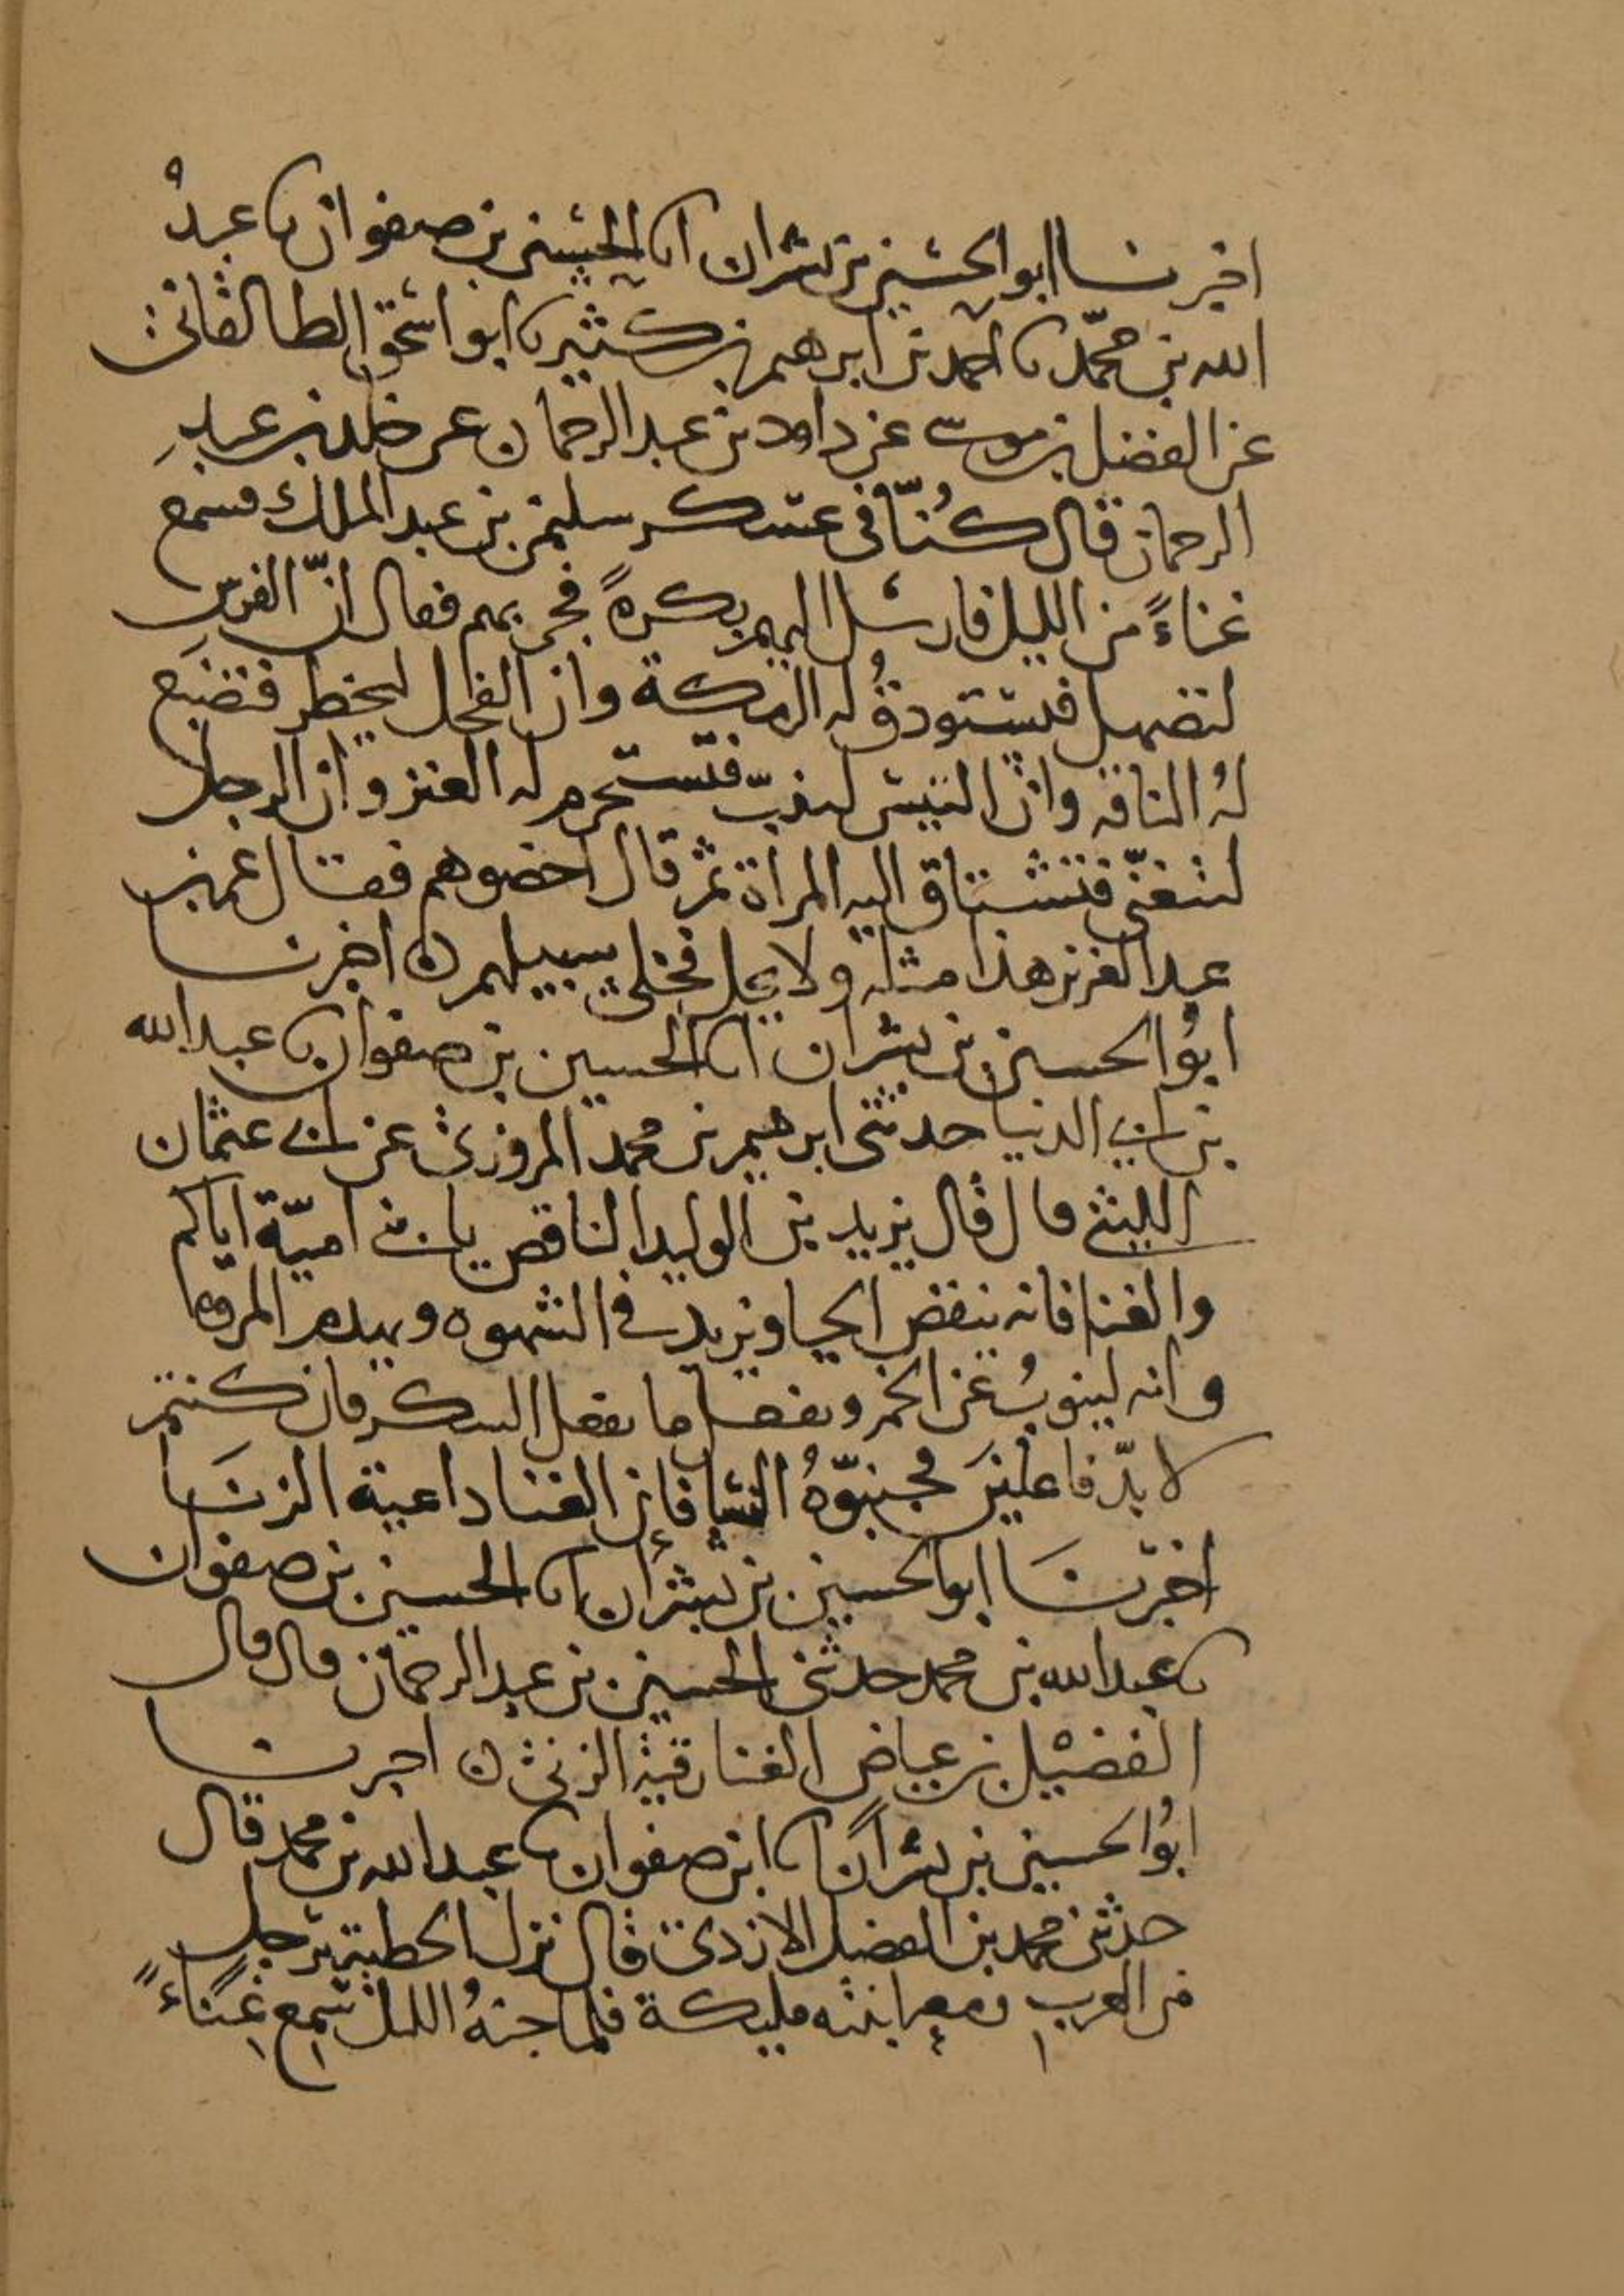 اخبرنا ابو الحسين بن بشران انا الحسين بن صفوان نا عبد
الله بن محمّد نا احمد بن ابرهيم بن كثير نا ابو اسحق الطالقانى
عن الفضل بن موسى عن داود بن عبد الرحمان عن خلد بن عبد
الرحمان قال كُنّا فى عسكر سليمن بن عبد الملك فسمع
غناءً من الليل فارسل اليهم بكرةً فجى بهم فقال انّ الفرس
لتصهل فتستودقُ له الرمكة وان الفحل ليخطر فتضبع
لهُ الناقه وان التيس لينبّ فتستحرم له العنز وان الرجل
لتغنّى فتشتاق اليه المراة ثم قال اخصوهم فقال عمر بن
عبد العزيز هذا مثلة ولا يحل فخلى سبيلهم ه اخبرنا
ابُو الحسين بن بشران انا الحسين بن صفوان نا عبد الله
بن ابى الدنيا حدثنى ابرهيم بن محمد المروزى عن ابى عثمان
الليثى قال قال يزيد بن الوليد الناقص يا بنى اميّة اياكم
والغنا فانه ينقص الحيا ويزيد فى الشهوه ويهدم المروه
وانه لينوبُ عن الخمر ويفعل ما يفعل السكر فان كنتم
لا بدّ فاعلينَ فجنبّوهُ النسا فان الغنا داعية الزنَا
اخبرنَا ابو الحسين بن بشران انا الحسين بن صفوان
نا عبد الله بن محمد حدثنى الحسين بن عبد الرحمان قال قال
الفضيل بن عياض الغنا رقية الزنى ه اخبرنا
ابُو الحسين بن بشران انا ابن صفوان نا عبد الله بن محمد قال
حدثنى محمد بن الفضل الازدى قال نزل الحطية برجل
من العرب ومعه ابنته مليكة فلما جنهُ الليل سمع غِناءً